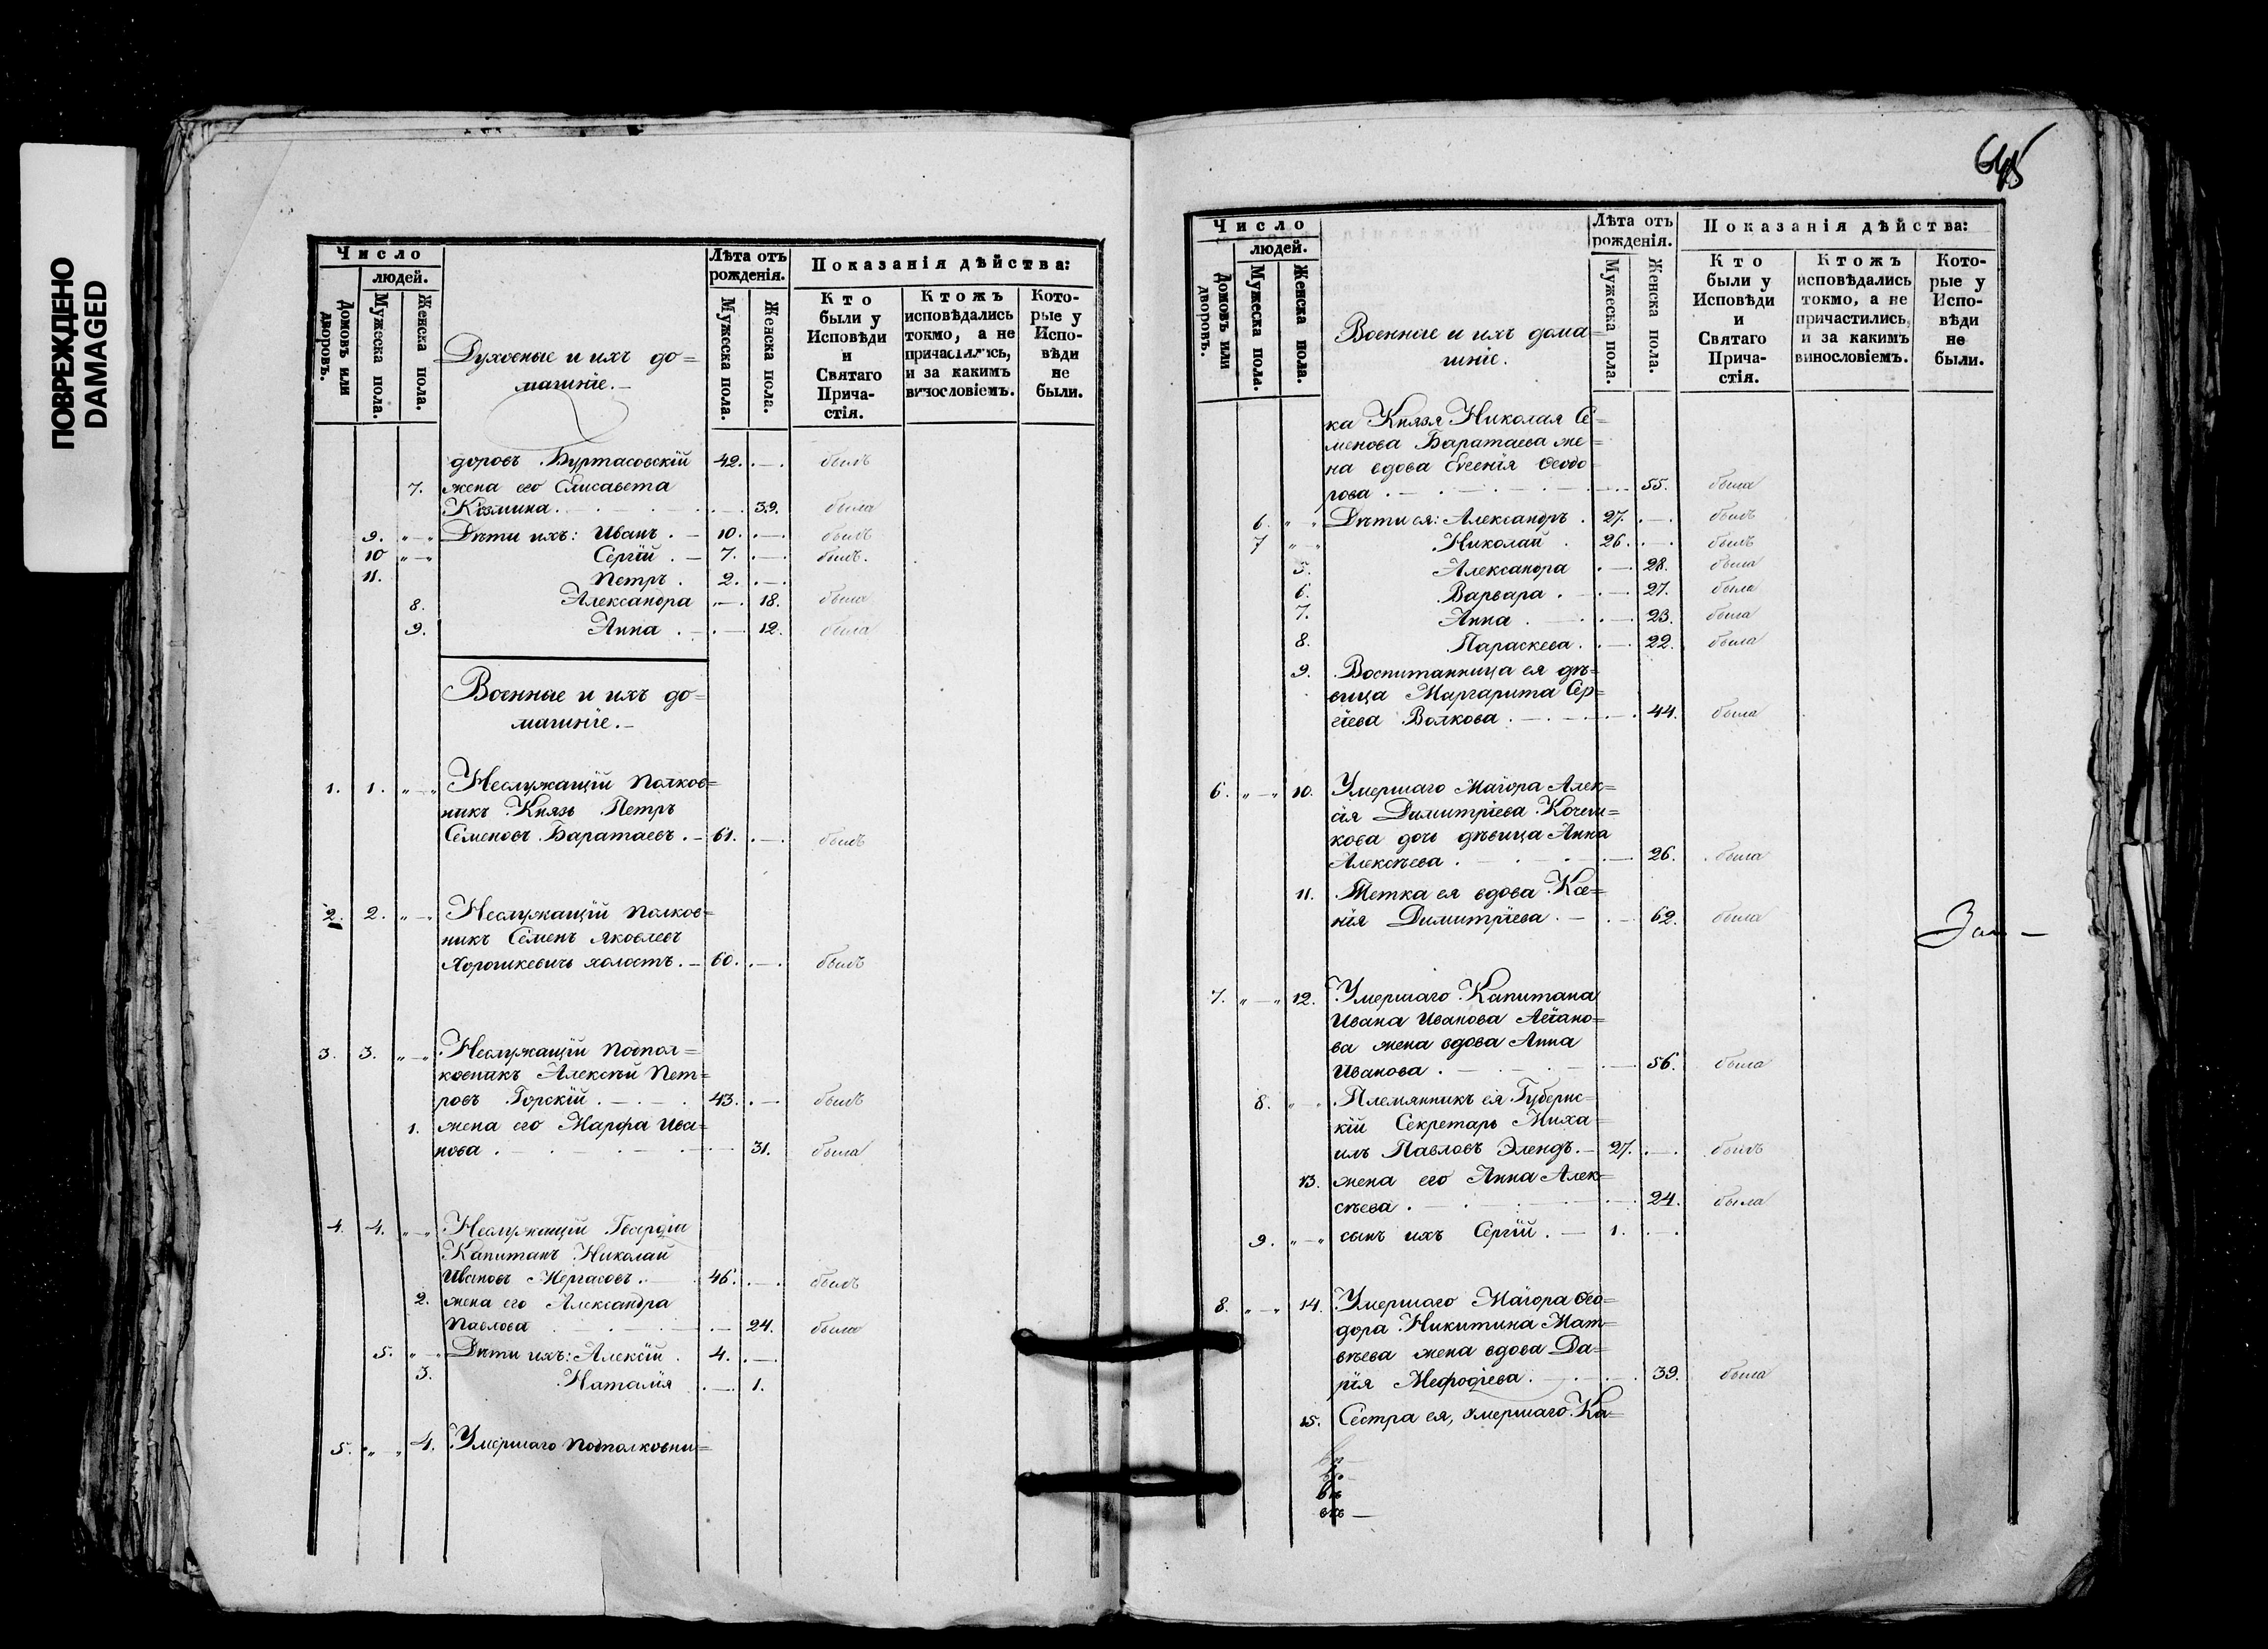 ПОВРЕЖДЕНО
DAMAGED
Число
людей.
Домовъ или дворовъ.
Мужеска пола.
Женска пола.
Духовные и ихъ до=
машніе.
Лѣта отъ рожденія.
Мужеска пола.
Женска пола.
Показанія дѣйства:
Кто были у Исповѣди и Святаго Прича-стія.
Ктожъ исповѣдались токмо, а не причастились, и за какимъ винословіемъ.
Кото-рые у Испо-вѣди не были.
доровъ Буртасовскій 42. былъ
7. жена его Елисавета
Козмина 39. была
9. Дѣти ихъ: Иванъ 10. былъ
10 Сергій 7. былъ.
11. Петръ 2.
8. Александра 18. была
9. Анна 12. была
Военные и ихъ до=
машніе.
1. 1. Неслужащій Полков=
никъ Князь Петръ
Семеновъ Баратаевъ 61. былъ
2. 2. Неслужащій Полков=
никъ Семенъ Яковлевъ
Хорошкевичъ холостъ 60. былъ
3. 3. Неслужащій Подпол=
ковникъ Алексѣй Пет=
ровъ Горскій 43. былъ
1. жена его Марфа Ива=
нова 31. была
4. 4. Неслужащій Гвардіи
Капитанъ Николай
Ивановъ Мергасовъ 46. былъ
2. жена его Александра
Павлова 24. была
5. Дѣти ихъ: Алексій 4.
3. Наталія 1.
5. 4. Умершаго Подполковни=
645
Число
людей.
Домовъ или дворовъ.
Мужеска пола.
Женска пола.
Военные и ихъ дома=
шніе.
Лѣта отъ рожденія.
Мужеска пола.
Женска пола.
Показанія дѣйства:
Кто были у Исповѣди и Святаго Прича-стія.
Ктожъ исповѣдались токмо, а не причастились, и за какимъ винословіемъ.
Кото-рые у Испо-вѣди не были.
ка Князя Николая Се=
менова Баратаева же=
на вдова Евгенія Феодо=
рова 55. была
6. Дѣти ея: Александръ 27. былъ
7 Николай 26. былъ
5. Александра 28. была
6. Варвара 27. была
7. Анна 23. была
8. Параскева 22. была
9. Воспитанница ея дѣ=
вица Маргарита Сер=
гіева Волкова 44. была
6. 10. Умершаго Маіора Алек=
сія Димитріева Кочеш=
кова дочь дѣвица Анна
Алексѣева 26. была
11. Тетка ея вдова Ксе=
нія Димитріева 62. была
7. 12. Умершаго Капитана
Ивана Иванова
ва жена вдова Анна
Иванова 56. была
8. Племянникъ ея Губернс=
кій Секретарь Миха=
илъ Павловъ Элендъ 27. былъ
13. жена его Анна Алек=
сѣева 24. была
9. сынъ ихъ Сергій 1.
8. 14. Умершаго Маіора Фео=
дора Никитина Мат=
вѣева жена вдова Да=
рія Мефодіева 39. была
15. Сестра ея, умершаго Ка=